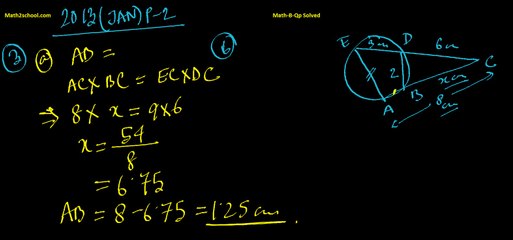 Math2school.com
2013(JAN)P-2
Math-B-Qp Solved
3 a AB =
AC × BC = EC × DC
⇒ 8 × x = 9 × 6
x = 54/8
= 6.75
AB = 8 - 6.75 = 1.25 cm.
6
E 3cm D 6cm C
2 x cm
A B 8cm